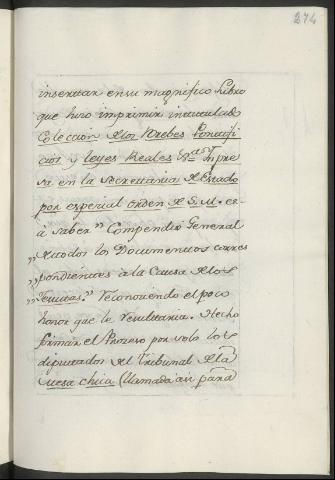 274
insertar en su magnifico Libro
que hizo imprimir intitulado
Colección de los Brebes Pontifi
cios y leyes Reales &ª Impre
sa en la Secrettaria de Estado
por especial orden de S. M. es-
à saber " Compendio General
" de todos los Documenttos corres
" pondientes a la Causa de los
" Jesuitas." Reconociendo el poco
honor que le resulttaria. Hecho
formar el Proceso por solo los
diputados del tribunal de la
Mesa chica (llamada asi para